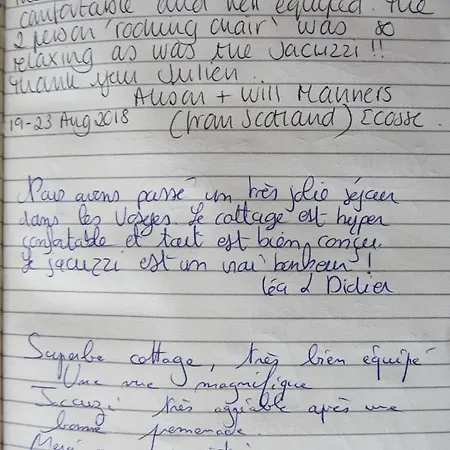 comfortable and well equiped. The
2 person 'rocking chair' was so
relaxing as was the jacuzzi !!
Thank you Julien..
Alison + Will Manners
19-23 Aug 2018 (from Scotland) Ecosse.
Nous avons passé un très joli séjour
dans les Vosges. Le cottage est hyper
confortable et tout est bien conçu.
Le jacuzzi est un vrai bonheur !
Léa & Didier
Superbe cottage, très bien équipé
Une vue magnifique
Jaccuzi très agréable après une
bonne promenade.